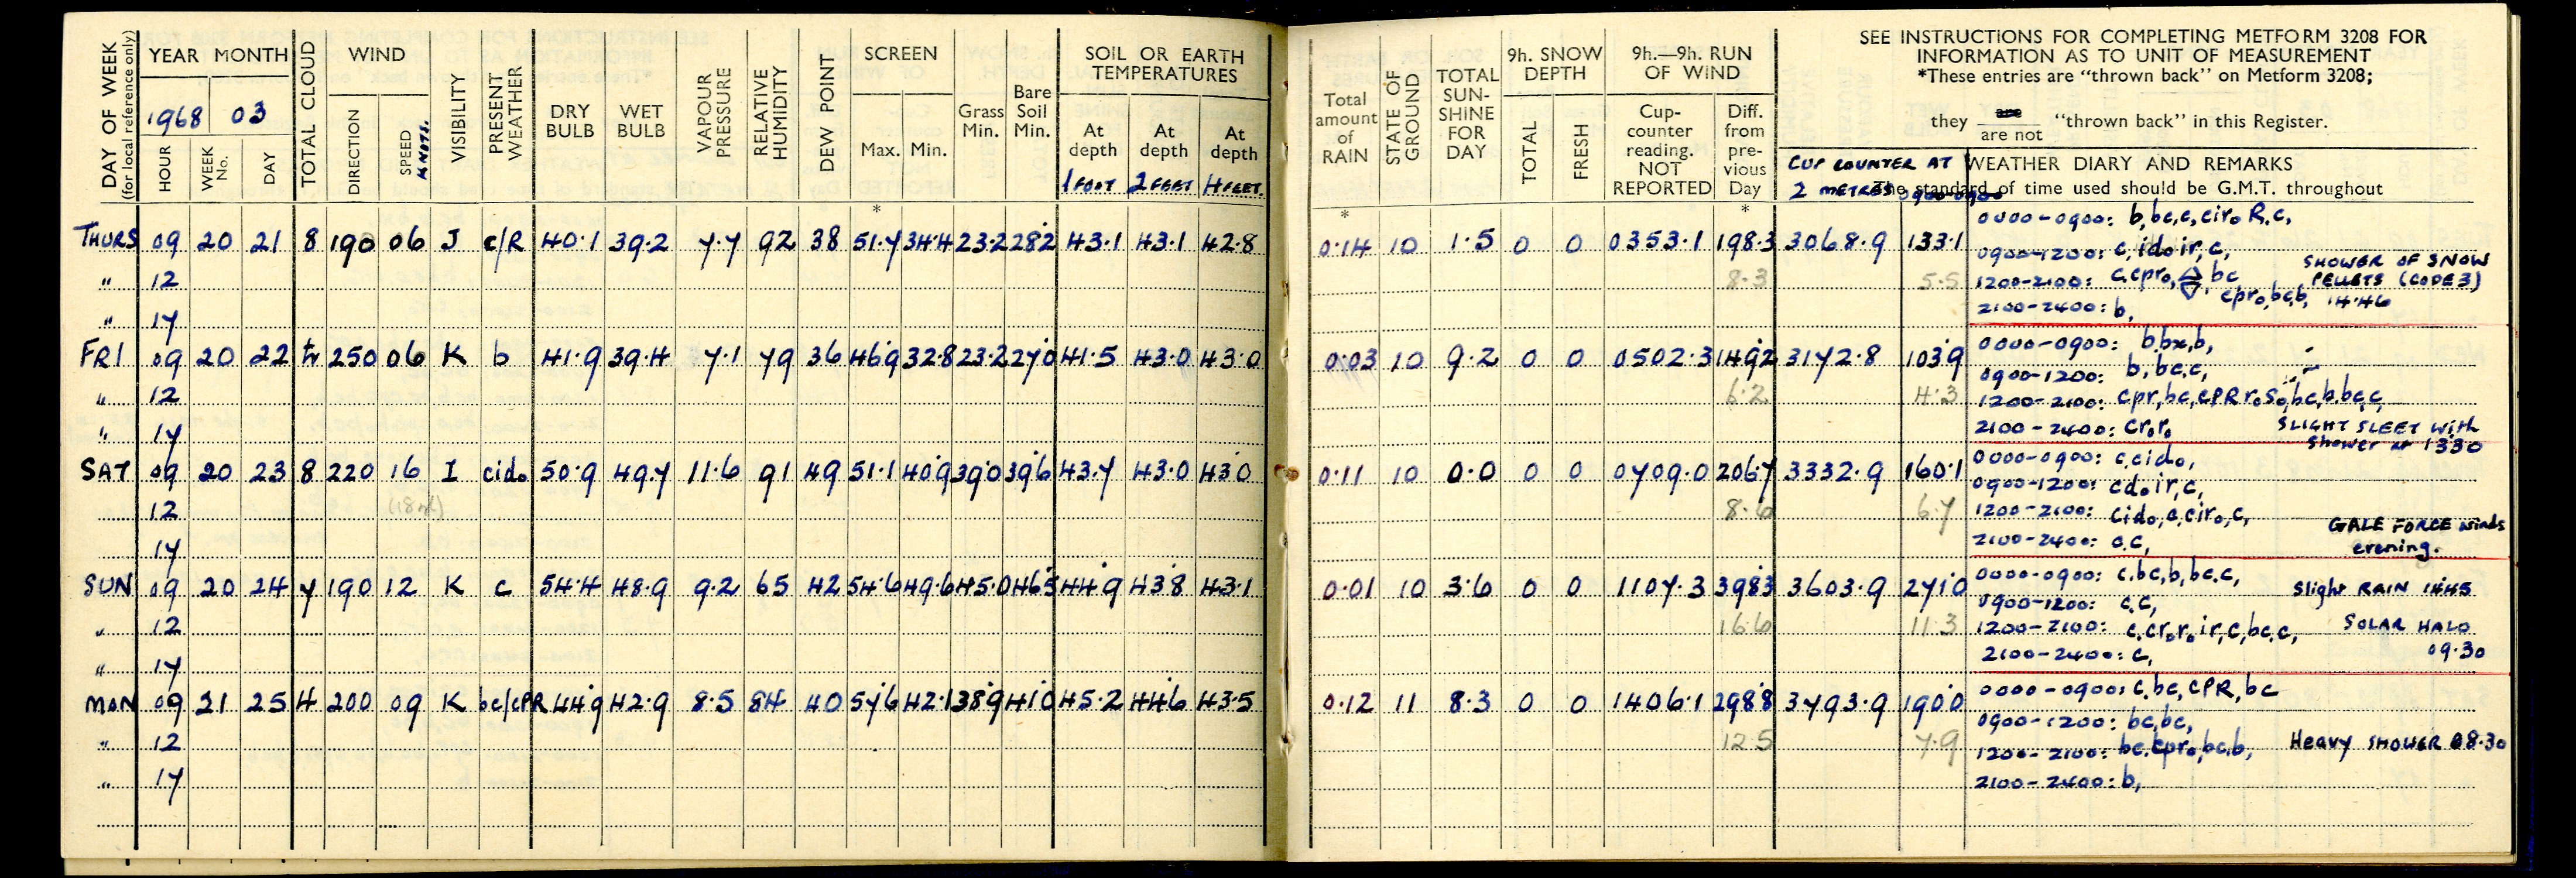 DAY OF WEEK (for local reference only) YEAR MONTH TOTAL CLOUD WIND VISIBILITY PRESENT WEATHER DRY BULB WET BULB VAPOUR PRESSURE RELATIVE HUMIDITY DEW POINT SCREEN Grass Min. Bare Soil Min. SOIL OR EARTH TEMPERATURES
1968 03
HOUR WEEK No. DAY DIRECTION SPEED KNOTS. Max. Min. At depth At depth At depth
1 FOOT 2 FEET 4 FEET.
*
THURS 09 20 21 8 190 06 J c/R 40.1 39.2 7.7 92 38 51.7 34.4 23.2 28.2 43.1 43.1 42.8
" 12
" 17
FRI 09 20 22 tr 250 06 K b 41.9 39.4 7.1 79 36 46.9 32.8 23.2 27.0 41.5 43.0 43.0
" 12
" 17
SAT 09 20 23 8 220 16 I cido 50.9 49.7 11.6 91 49 51.1 40.9 39.0 39.6 43.7 43.0 43.0
12
17
SUN 09 20 24 7 190 12 K c 54.4 48.9 9.2 65 42 54.6 49.6 45.0 46.5 44.9 43.8 43.1
" 12
" 17
MON 09 21 25 4 200 09 K bc/cPR 44.9 42.9 8.5 84 40 57.6 42.1 38.9 41.0 45.2 44.6 43.5
" 12
" 17
Total amount of RAIN STATE OF GROUND TOTAL SUN-SHINE FOR DAY 9h. SNOW DEPTH 9h.—9h. RUN OF WIND
TOTAL FRESH Cup-counter reading. NOT REPORTED Diff. from pre-vious Day
SEE INSTRUCTIONS FOR COMPLETING METFORM 3208 FOR
INFORMATION AS TO UNIT OF MEASUREMENT
*These entries are "thrown back" on Metform 3208;
they are
are not "thrown back" in this Register.
CUP COUNTER AT WEATHER DIARY AND REMARKS
2 METRES 0900-0900 The standard of time used should be G.M.T. throughout
* *
0.14 10 1.5 0 0 0353.1 198.3 3068.9 133.1 0000-0900: b,bc,c,ciro R.c,
0900-1200: c,ido ir,c,
8.3 5.5 1200-2100: c,cpro, bc cpro,bc,b, SHOWER OF SNOW PELLETS (CODE 3) 14.46
2100-2400: b,
0.03 10 9.2 0 0 0502.3 149.2 3172.8 103.9 0000-0900: b,bx,b,
0900-1200: b,bc,c,
6.2 4.3 1200-2100: cpr,bc,cPR roso,bc,b.bc,c,
2100-2400: croro SLIGHT SLEET With Shower at 1330
0.11 10 0.0 0 0 0709.0 206.7 3332.9 160.1 0000-0900: c.cido,
0900-1200: cdo ir,c,
8.6 6.7 1200-2100: cido,c,ciro,c,
2100-2400: c.c, GALE FORCE winds evening.
0.01 10 3.6 0 0 1107.3 398.3 3603.9 271.0 0000-0900: c.bc,b,bc.c, Slight RAIN 1445
0900-1200: c.c,
16.6 11.3 1200-2100: c.croro ir,c,bc,c, SOLAR HALO 09.30
2100-2400: c,
0.12 11 8.3 0 0 1406.1 298.8 3793.9 190.0 0000-0900: c,bc,cPR,bc
0900-1200: bc,bc,
12.5 7.9 1200-2100: bc.cpro,bc.b, Heavy SHOWER 08.30
2100-2400: b,